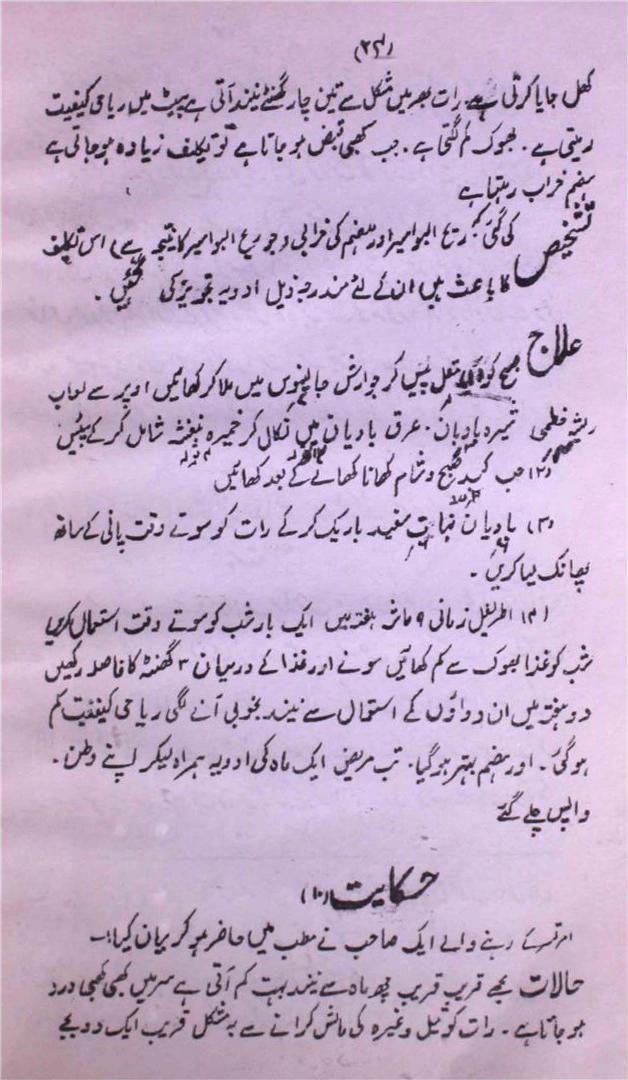 (۲۴)
کھل جایا کرتی ہے۔ رات بھر میں مشکل سے تین چار گھنٹے نیند آتی ہے پیٹ میں ریاحی کیفیت
رہتی ہے۔ بھوک کم لگتی ہے۔ جب کبھی قبض ہو جاتا ہے تو تکلیف زیادہ ہو جاتی ہے
ہضم خراب رہتا ہے
تشخیص کی گئی کہ ریح البواسیر اور ہضم کی خرابی (جو ریح البواسیر کا نتیجہ ہے) اس تکلیف
کا باعث ہیں ان کے لئے مندرجہ ذیل ادویہ تجویز کی گئیں۔
علاج صبح مقل پیس کر جوارش جالینوس میں ملا کر کھائیں اوپر سے لعاب
ریشہ خطمی شیرہ بادیان۔ عرق بادیان میں نکال کر خمیرہ بنفشہ شامل کر کے پئیں
(۲) حب کبد صبح و شام کھانا کھانے کے بعد کھائیں
(۳) بادیان نبات سفید باریک کر کے رات کو سوتے وقت پانی کے ساتھ
پھانک لیا کریں۔
(۴) اطریفل زمانی ۹ ماشہ ہفتہ میں ایک بار شب کو سوتے وقت استعمال کریں
شب کو غذا بھوک سے کم کھائیں سونے اور غذا کے درمیان ۳ گھنٹہ کا فاصلہ رکھیں
دو ہفتہ میں ان دواؤں کے استعمال سے نیند بخوبی آنے لگی ریاحی کیفیت کم
ہو گئی۔ اور ہضم بہتر ہو گیا۔ تب مریض ایک ماہ کی ادویہ ہمراہ لیکر اپنے وطن۔
واپس چلے گئے
حکایت (۱۰)
امرتسر کے رہنے والے ایک صاحب نے مطب میں حاضر ہو کر بیان کیا:۔
حالات مجھے قریب قریب چھ ماہ سے نیند بہت کم آتی ہے سر میں کبھی کبھی درد
ہو جاتا ہے۔ رات کو تیل وغیرہ کی مالش کرانے سے بہ مشکل قریب ایک دو بجے